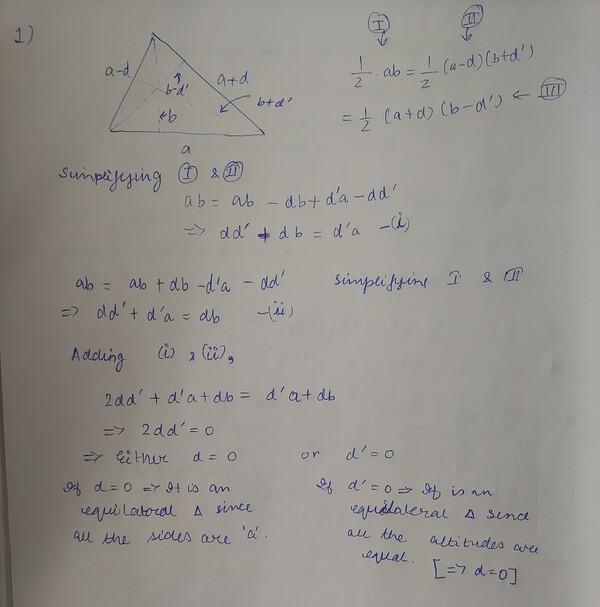 1)
I II
a-d
a+d
b-d'
b+d'
b
a
1/2 · ab = 1/2 (a-d)(b+d')
= 1/2 (a+d)(b-d') ← III
Simplifying I & II
ab = ab - db + d'a - dd'
=> dd' + db = d'a -(i)
ab = ab + db - d'a - dd' Simplifying I & III
=> dd' + d'a = db -(ii)
Adding (i) & (ii),
2dd' + d'a + db = d'a + db
=> 2dd' = 0
=> Either d = 0 or d' = 0
If d = 0 => It is an
equilateral Δ since
all the sides are 'a'.
If d' = 0 => If is an
equilateral Δ since
all the altitudes are
equal. [=> d=0]